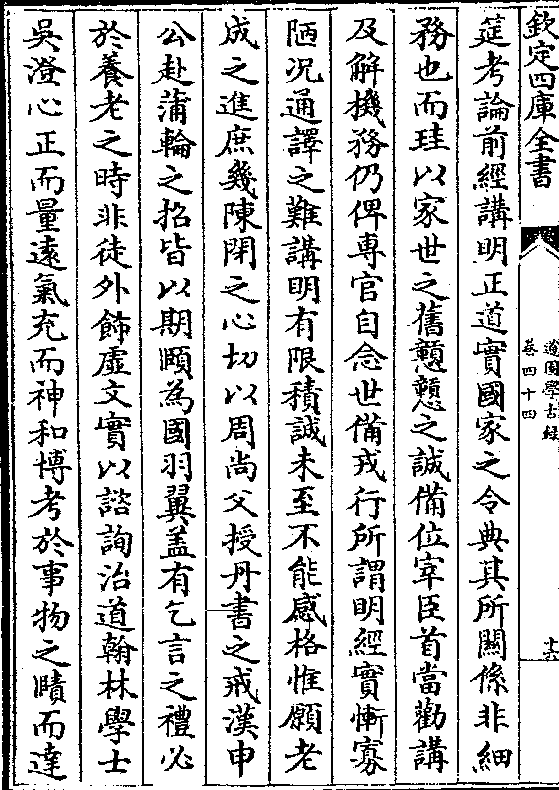 欽定四庫全書
道園學古錄
卷四十四
十六
筵考論前經講明正道實國家之令典其所關係非細
務也而珪以家世之舊慤慤之誠備位宰臣首當勸講
及解機務仍俾專官自念世備戎行所謂明經實慚寡
陋况通譯之難講明有限積誠未至不能感格惟願老
成之進庶幾陳閉之心切以周尚父授丹書之戒漢申
公赴蒲輪之招皆以期頤為國羽翼盖有乞言之禮必
於養老之時非徒外飾虛文實以諮詢治道翰林學士
吳澄心正而量遠氣充而神和博考於事物之賾而達